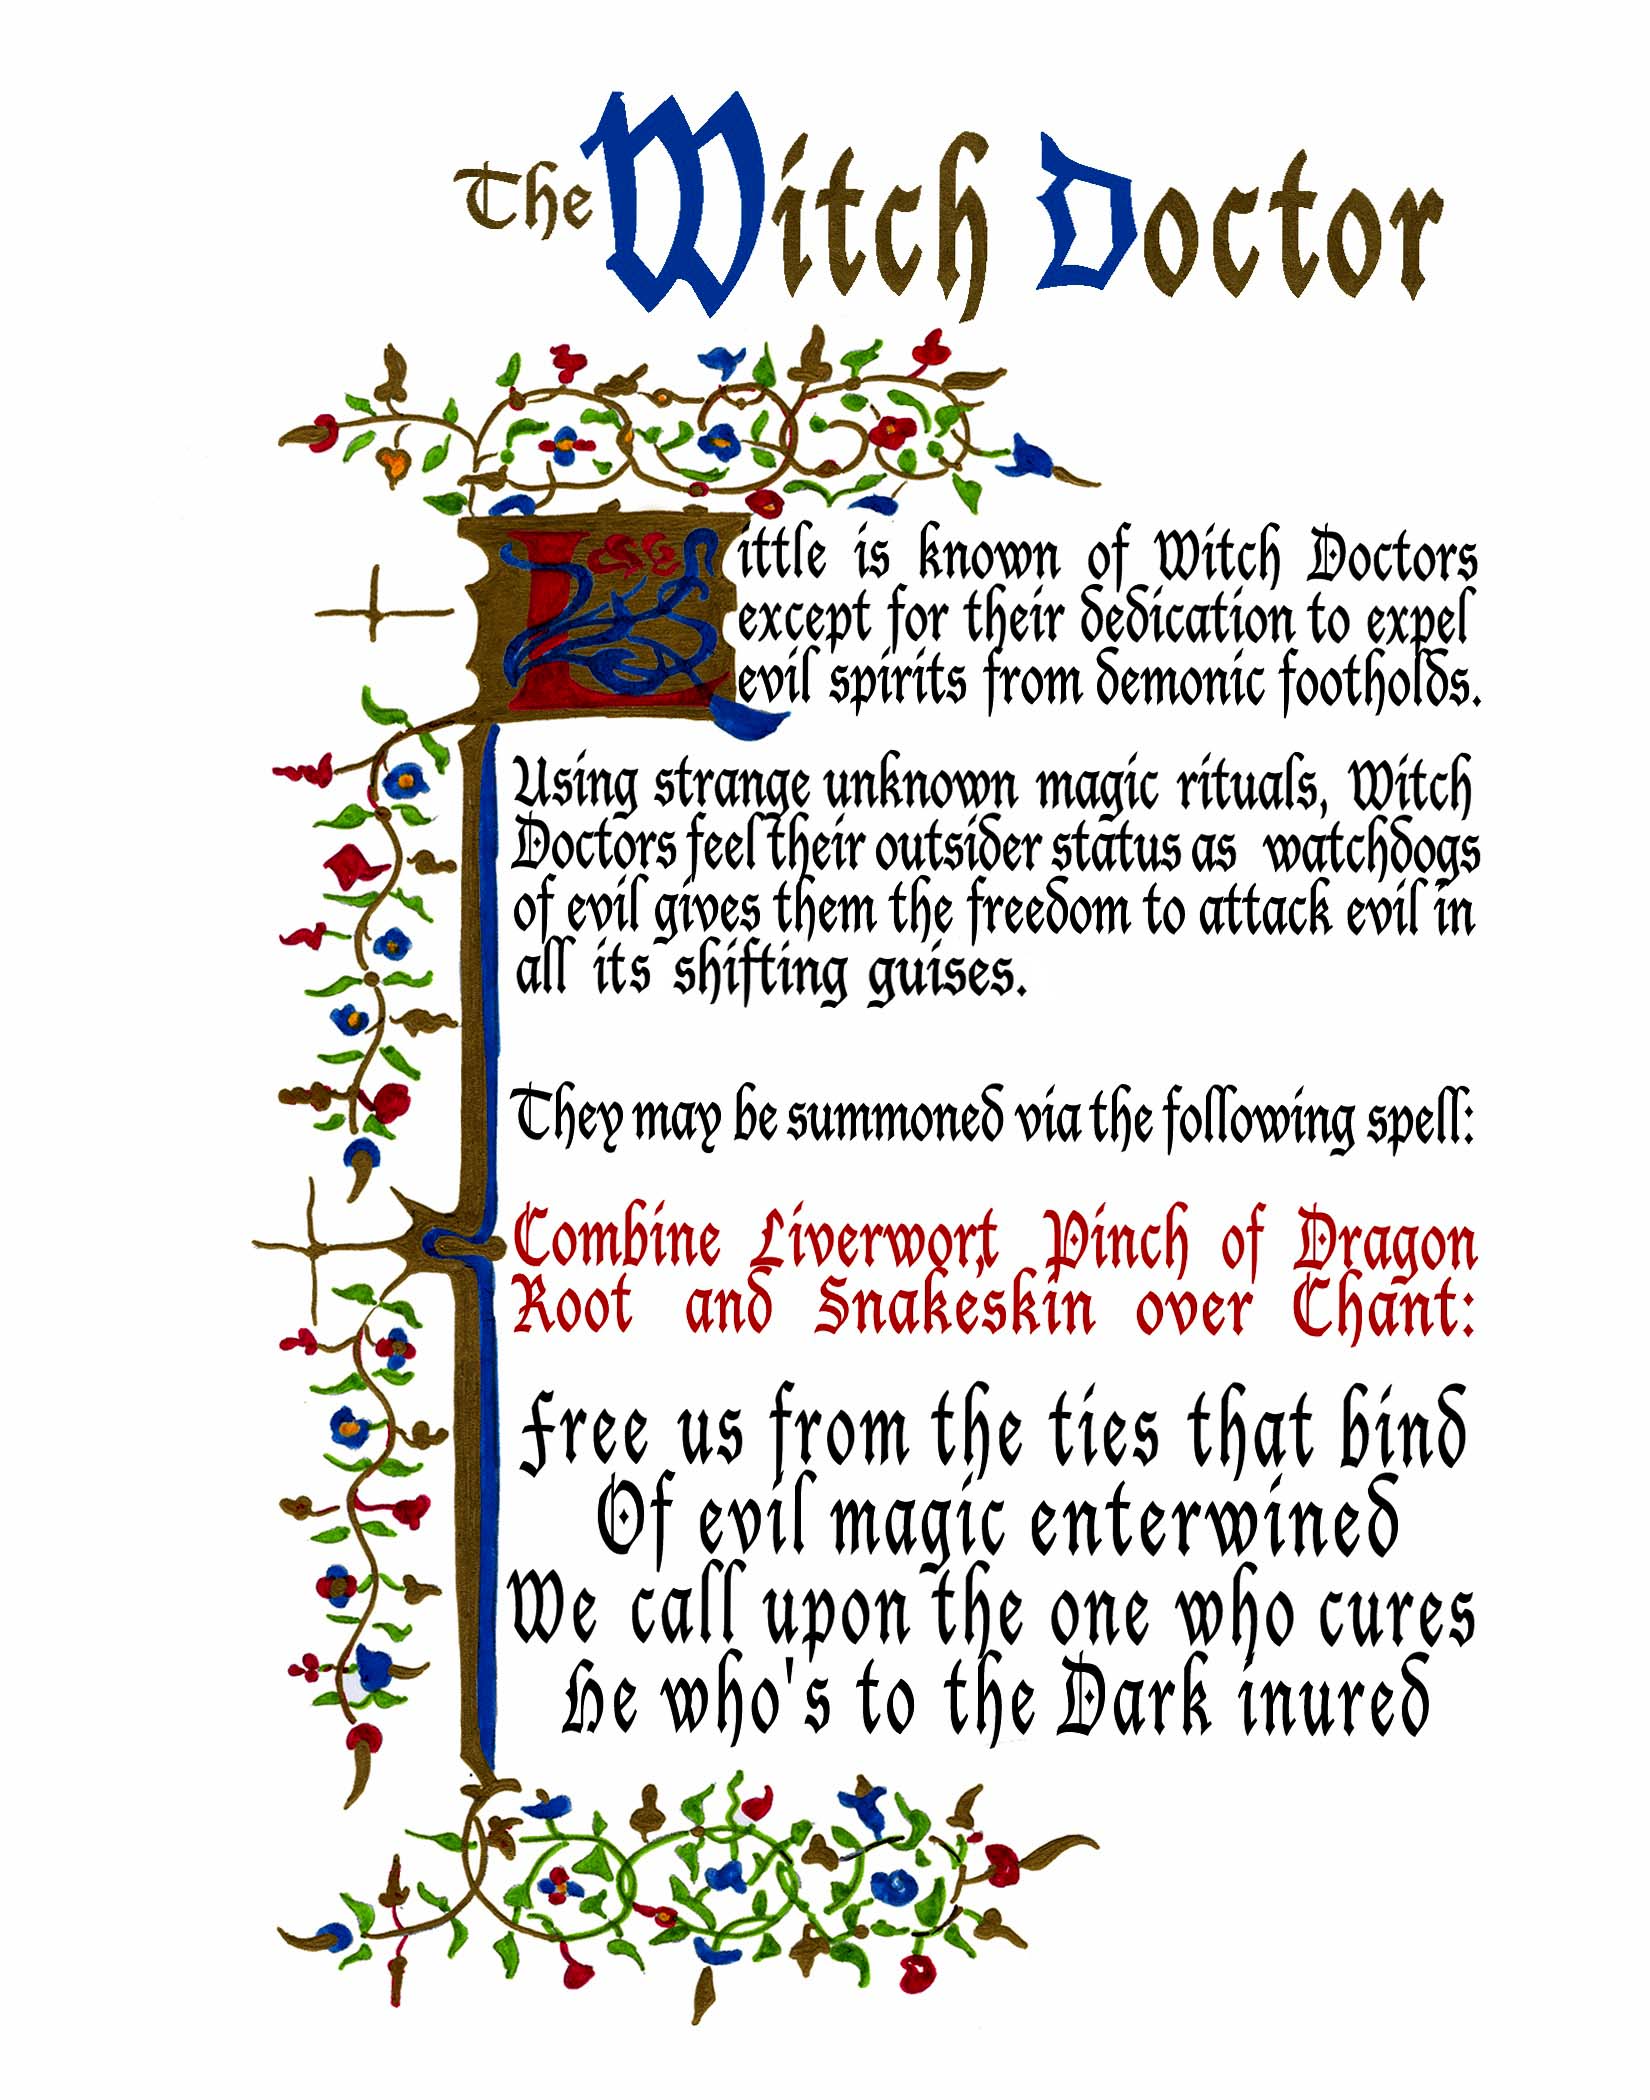 The Witch Doctor
Little is known of Witch Doctors
except for their dedication to expel
evil spirits from demonic footholds.
Using strange unknown magic rituals, Witch
Doctors feel their outsider status as watchdogs
of evil gives them the freedom to attack evil in
all its shifting guises.
They may be summoned via the following spell:
Combine Liverwort, Pinch of Dragon
Root and Snakeskin over Chant:
Free us from the ties that bind
Of evil magic enterwined
We call upon the one who cures
He who's to the Dark inured